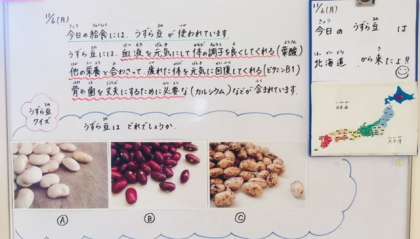 11/6(月)
今日の給食には、うずら豆が使われています。
うずら豆には、血液を元気にして体の調子を良くしてくれる(葉酸)
他の栄養と合わさって、疲れた体を元気に回復してくれる(ビタミンB1)
骨や歯を丈夫にするために必要な(カルシウム)などが含まれています。
うずら豆
クイズ
うずら豆は どれでしょうか。
Ⓐ
Ⓑ
Ⓒ
11/6(月)
今日の うずら豆 は
北海道 から来たよ!!